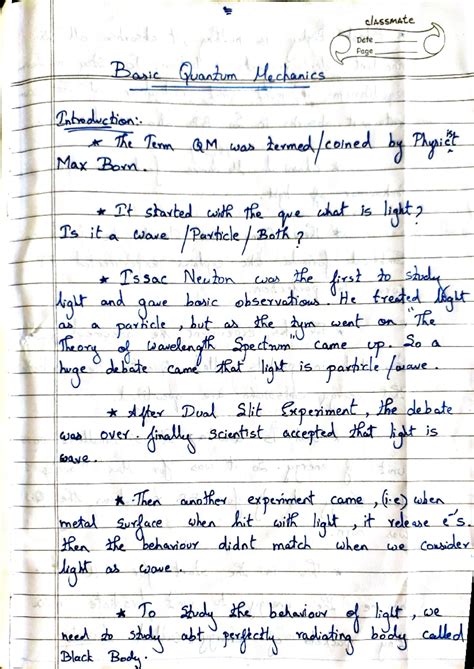 classmate
Date
Page
Basic Quantum Mechanics
Introduction:-
* The Term QM was termed/coined by Physicist
Max Born.
* It started with the que what is light?
Is it a wave / Particle / Both?
* Issac Newton was the first to study
light and gave basic observations. He treated light
as a particle, but as the tym went on "The
Theory of Wavelength Spectrum" came up. So a
huge debate came that light is particle / wave.
* After Dual Slit Experiment, the debate
was over. finally scientist accepted that light is
wave.
* Then another experiment came, (i.e) when
metal surface when hit with light, it release e⁻'s.
then the behaviour didnt match when we consider
light as wave.
* To Study the behaviour of light, we
need to study abt perfectly radiating body called
Black Body.